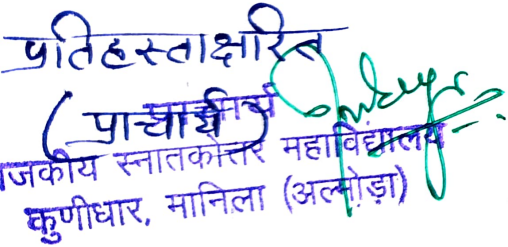 प्रतिहस्ताक्षरित
(प्राचार्य)
प्राचार्य
राजकीय स्नातकोत्तर महाविद्यालय
कुणीधार, मानिला (अल्मोड़ा)